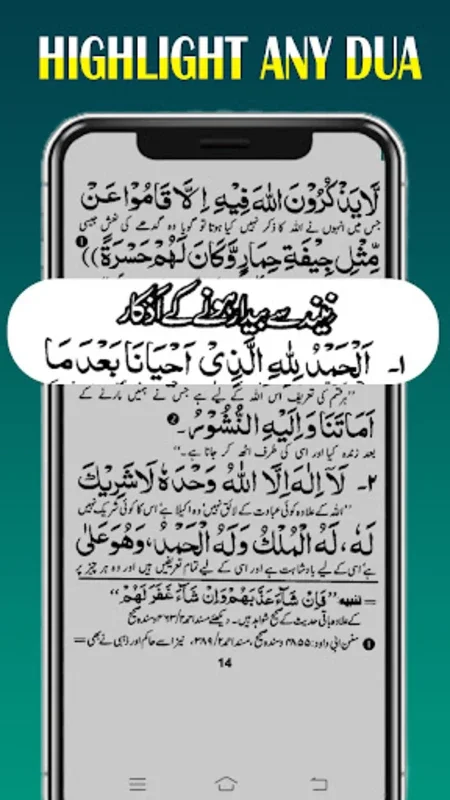 HIGHLIGHT ANY DUA
لَا يَذْكُرُوْنَ اللهَ فِيْهِ اِلَّا قَامُوْا عَنْ
جس میں انہوں نے اللہ کا ذکر نہیں کیا ہوتا تو گویا وہ گدھے کی نعش جیسی
مِّثْلِ جِيْفَةِ حِمَارٍ وَّكَانَ لَهُمْ حَسْرَةً)) ❶
نیند سے بیدار ہونے کے اذکار
۱۔ اَلْحَمْدُ لِلّٰهِ الَّذِيْ اَحْيَانَا بَعْدَ مَا
"ہر قسم کی تعریف اس اللہ کے لیے ہے جس نے ہمیں مارنے کے
اَمَاتَنَا وَاِلَيْهِ النُّشُوْرُ۔ ❷
بعد زندہ کیا اور اسی کی طرف اٹھ کر جانا ہے۔"
۲۔ لَآ اِلٰهَ اِلَّا اللهُ وَحْدَهٗ لَا شَرِيْكَ
"اللہ کے علاوہ کوئی عبادت کے لائق نہیں وہ اکیلا ہے اس کا کوئی شریک نہیں
لَهٗ، لَهُ الْمُلْكُ وَلَهُ الْحَمْدُ، وَهُوَ عَلٰى
ہے اسی کے لیے بادشاہت ہے اور اسی کے لیے تمام تعریفیں ہیں اور وہ ہر چیز پر
= تنبیہ "فَاِنْ شَآءَ عَذَّبَهُمْ وَاِنْ شَآءَ غَفَرَ لَهُمْ"
کے علاوہ باقی حدیث کے صحیح شواہد ہیں۔ دیکھئے مسند احمد
❶ سنن ابی داود: ۴۸۵۵ وسندہ صحیح، مسند احمد ۲/۳۸۹، نیز اسے حاکم اور ذہبی نے بھی =
14